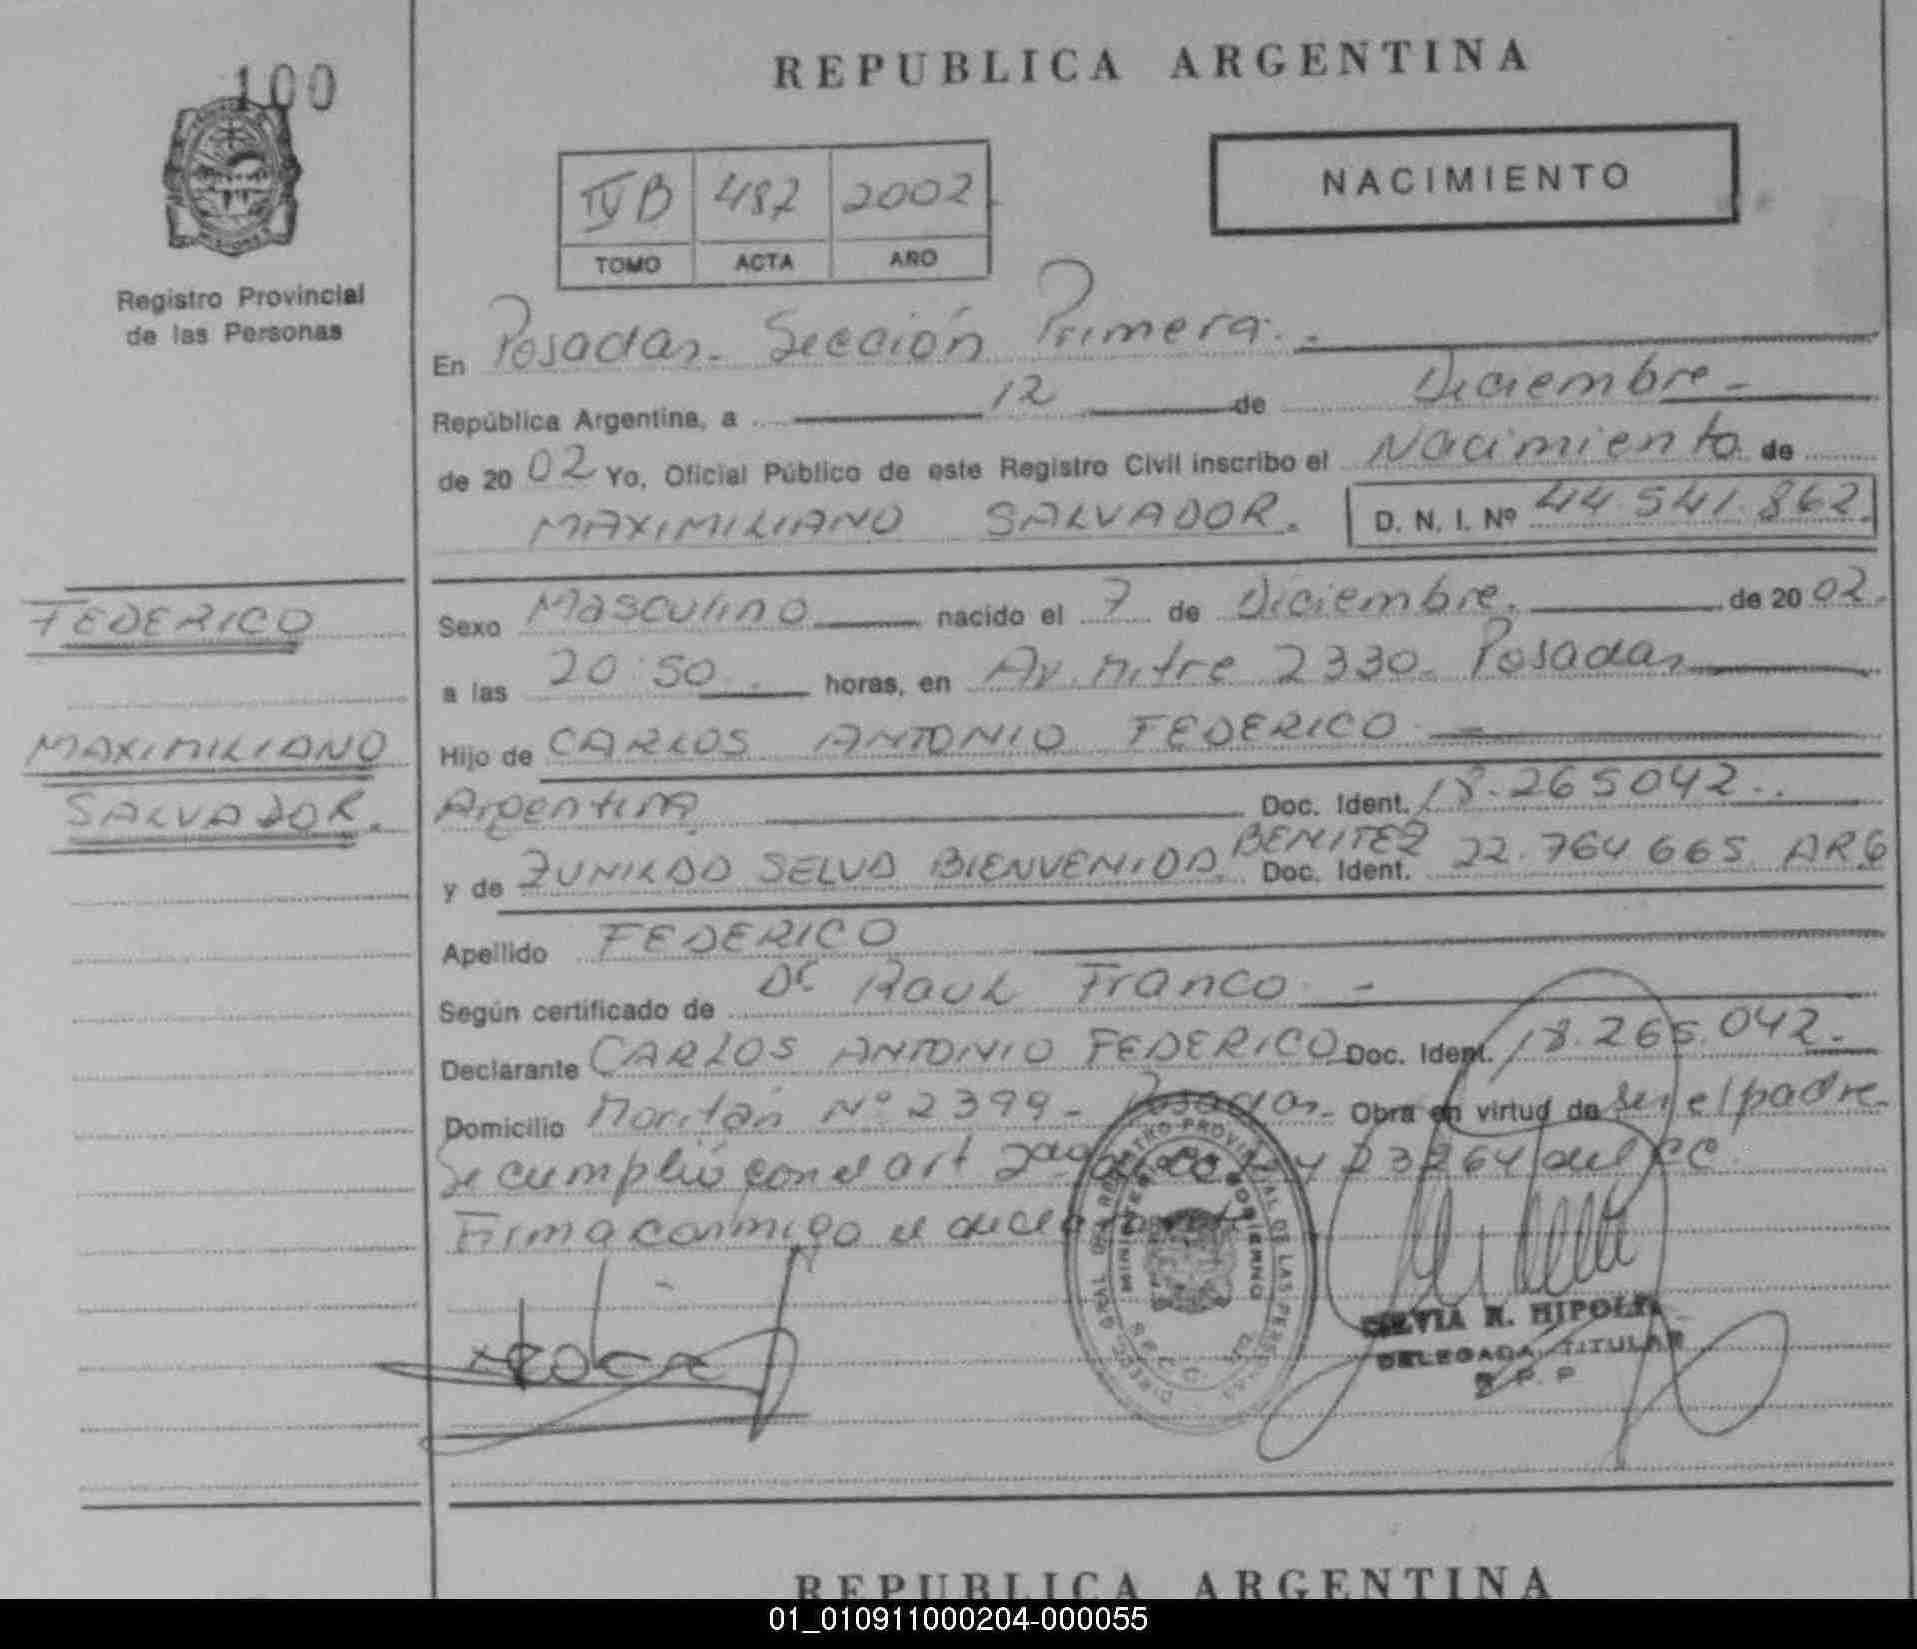 100
REPUBLICA ARGENTINA
NACIMIENTO
IV B 487 2002
TOMO ACTA AÑO
Registro Provincial
de las Personas
En Posadas. Sección Primera.
República Argentina, a 12 de Diciembre
de 2002 Yo, Oficial Público de este Registro Civil inscribo el Nacimiento de
MAXIMILIANO SALVADOR. D. N. I. Nº 44.541.862.
FEDERICO
MAXIMILIANO
SALVADOR.
Sexo Masculino nacido el 7 de Diciembre. de 2002.
a las 20:50 horas, en Av. Mitre 2330. Posadas
Hijo de CARLOS ANTONIO FEDERICO
Argentina Doc. Ident. 18.265042.
y de ZUNILDA SELVA BIENVENIDA BENITEZ Doc. Ident. 22.764.665 ARG
Apellido FEDERICO
Según certificado de Dr. Raul Franco
Declarante CARLOS ANTONIO FEDERICO Doc. Ident. 18.265.042.
Domicilio Nº 2399 - Posadas. Obra en virtud de ser el padre.
Se cumplió con el art 23264 del CC.
Firma conmigo el declarante
SILVIA R.
DELEGADA TITULAR
R. P. P
REPUBLICA ARGENTINA
01_010911000204-000055